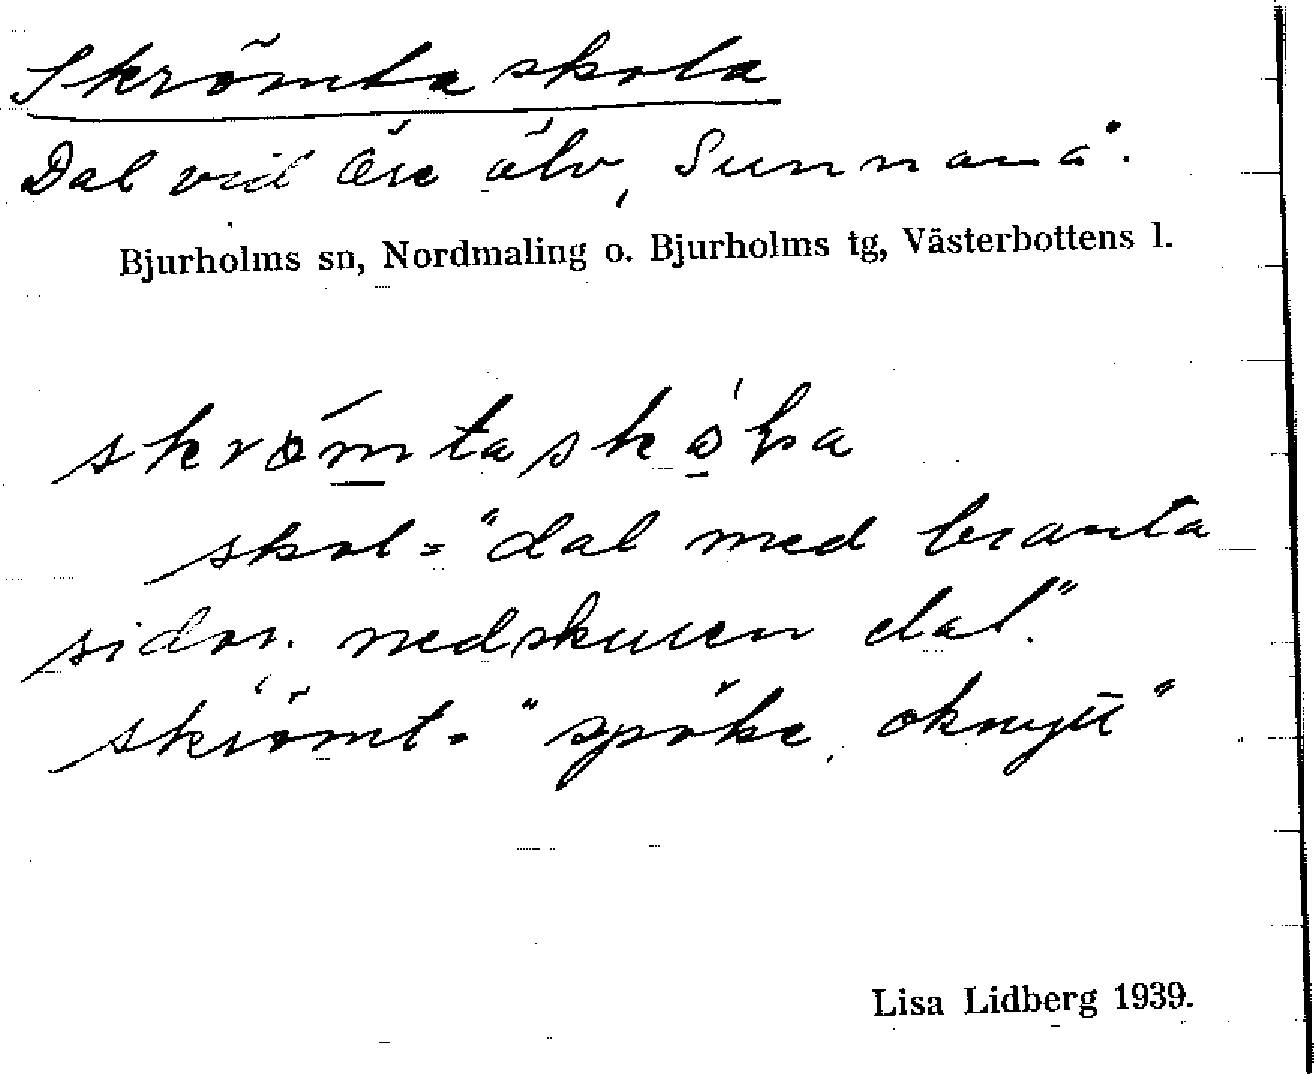 Skrömtaskola
Dal vid Öre älv, Sunnanå.
Bjurholms sn, Nordmaling o. Bjurholms tg, Västerbottens l.
skrömtaskola
skol = "dal med branta
sidor. nedskuren dal."
skrömt = "spöke, oknytt"
Lisa Lidberg 1939.